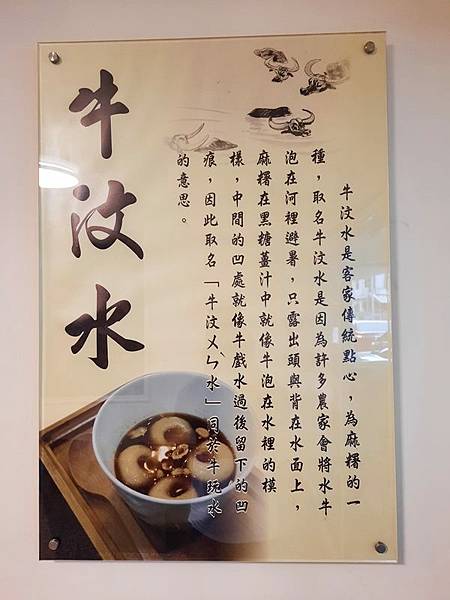 牛汶水
牛汶水是客家傳統點心，為麻糬的一
種，取名牛汶水是因為許多農家會將水牛
泡在河裡避暑，只露出頭與背在水面上，
麻糬在黑糖薑汁中就像牛泡在水裡的模
樣，中間的凹處就像牛戲水過後留下的凹
痕，因此取名「牛汶ㄨㄣˋ水」同於牛玩水
的意思。